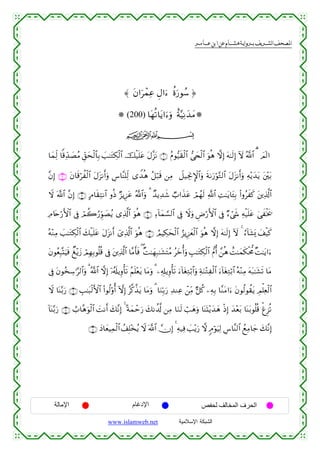 المصحف الشريف برواية هشام عن ابن عامر
﴿ سُورَةُ ءَالِ عِمْرَانَ ﴾
مَدَنِيَّةٌ وَءَايَاتُهَا (200)
الٓمٓ ۝ ٱللَّهُ لَآ إِلَٰهَ إِلَّا هُوَ ٱلْحَىُّ ٱلْقَيُّومُ ۝ نَزَّلَ عَلَيْكَ ٱلْكِتَٰبَ بِٱلْحَقِّ مُصَدِّقًا لِّمَا
بَيْنَ يَدَيْهِ وَأَنزَلَ ٱلتَّوْرَىٰةَ وَٱلْإِنجِيلَ مِن قَبْلُ هُدًى لِّلنَّاسِ وَأَنزَلَ ٱلْفُرْقَانَ ۝ إِنَّ
ٱلَّذِينَ كَفَرُوا۟ بِـَٔايَٰتِ ٱللَّهِ لَهُمْ عَذَابٌ شَدِيدٌ ۗ وَٱللَّهُ عَزِيزٌ ذُو ٱنتِقَامٍ ۝ إِنَّ ٱللَّهَ لَا
يَخْفَىٰ عَلَيْهِ شَىْءٌ فِى ٱلْأَرْضِ وَلَا فِى ٱلسَّمَآءِ ۝ هُوَ ٱلَّذِى يُصَوِّرُكُمْ فِى ٱلْأَرْحَامِ
كَيْفَ يَشَآءُ ۚ لَآ إِلَٰهَ إِلَّا هُوَ ٱلْعَزِيزُ ٱلْحَكِيمُ ۝ هُوَ ٱلَّذِىٓ أَنزَلَ عَلَيْكَ ٱلْكِتَٰبَ مِنْهُ
ءَايَٰتٌ مُّحْكَمَٰتٌ هُنَّ أُمُّ ٱلْكِتَٰبِ وَأُخَرُ مُتَشَٰبِهَٰتٌ ۖ فَأَمَّا ٱلَّذِينَ فِى قُلُوبِهِمْ زَيْغٌ فَيَتَّبِعُونَ
مَا تَشَٰبَهَ مِنْهُ ٱبْتِغَآءَ ٱلْفِتْنَةِ وَٱبْتِغَآءَ تَأْوِيلِهِۦ ۗ وَمَا يَعْلَمُ تَأْوِيلَهُۥٓ إِلَّا ٱللَّهُ ۗ وَٱلرَّٰسِخُونَ فِى
ٱلْعِلْمِ يَقُولُونَ ءَامَنَّا بِهِۦ كُلٌّ مِّنْ عِندِ رَبِّنَا ۗ وَمَا يَذَّكَّرُ إِلَّآ أُو۟لُوا۟ ٱلْأَلْبَٰبِ ۝ رَبَّنَا لَا
تُزِغْ قُلُوبَنَا بَعْدَ إِذْ هَدَيْتَنَا وَهَبْ لَنَا مِن لَّدُنكَ رَحْمَةً ۚ إِنَّكَ أَنتَ ٱلْوَهَّابُ ۝ رَبَّنَآ
إِنَّكَ جَامِعُ ٱلنَّاسِ لِيَوْمٍ لَّا رَيْبَ فِيهِ ۚ إِنَّ ٱللَّهَ لَا يُخْلِفُ ٱلْمِيعَادَ ۝
الحرف المخالف لحفص الإدغام الإمالة
الشبكة الإسلامية www.islamweb.net